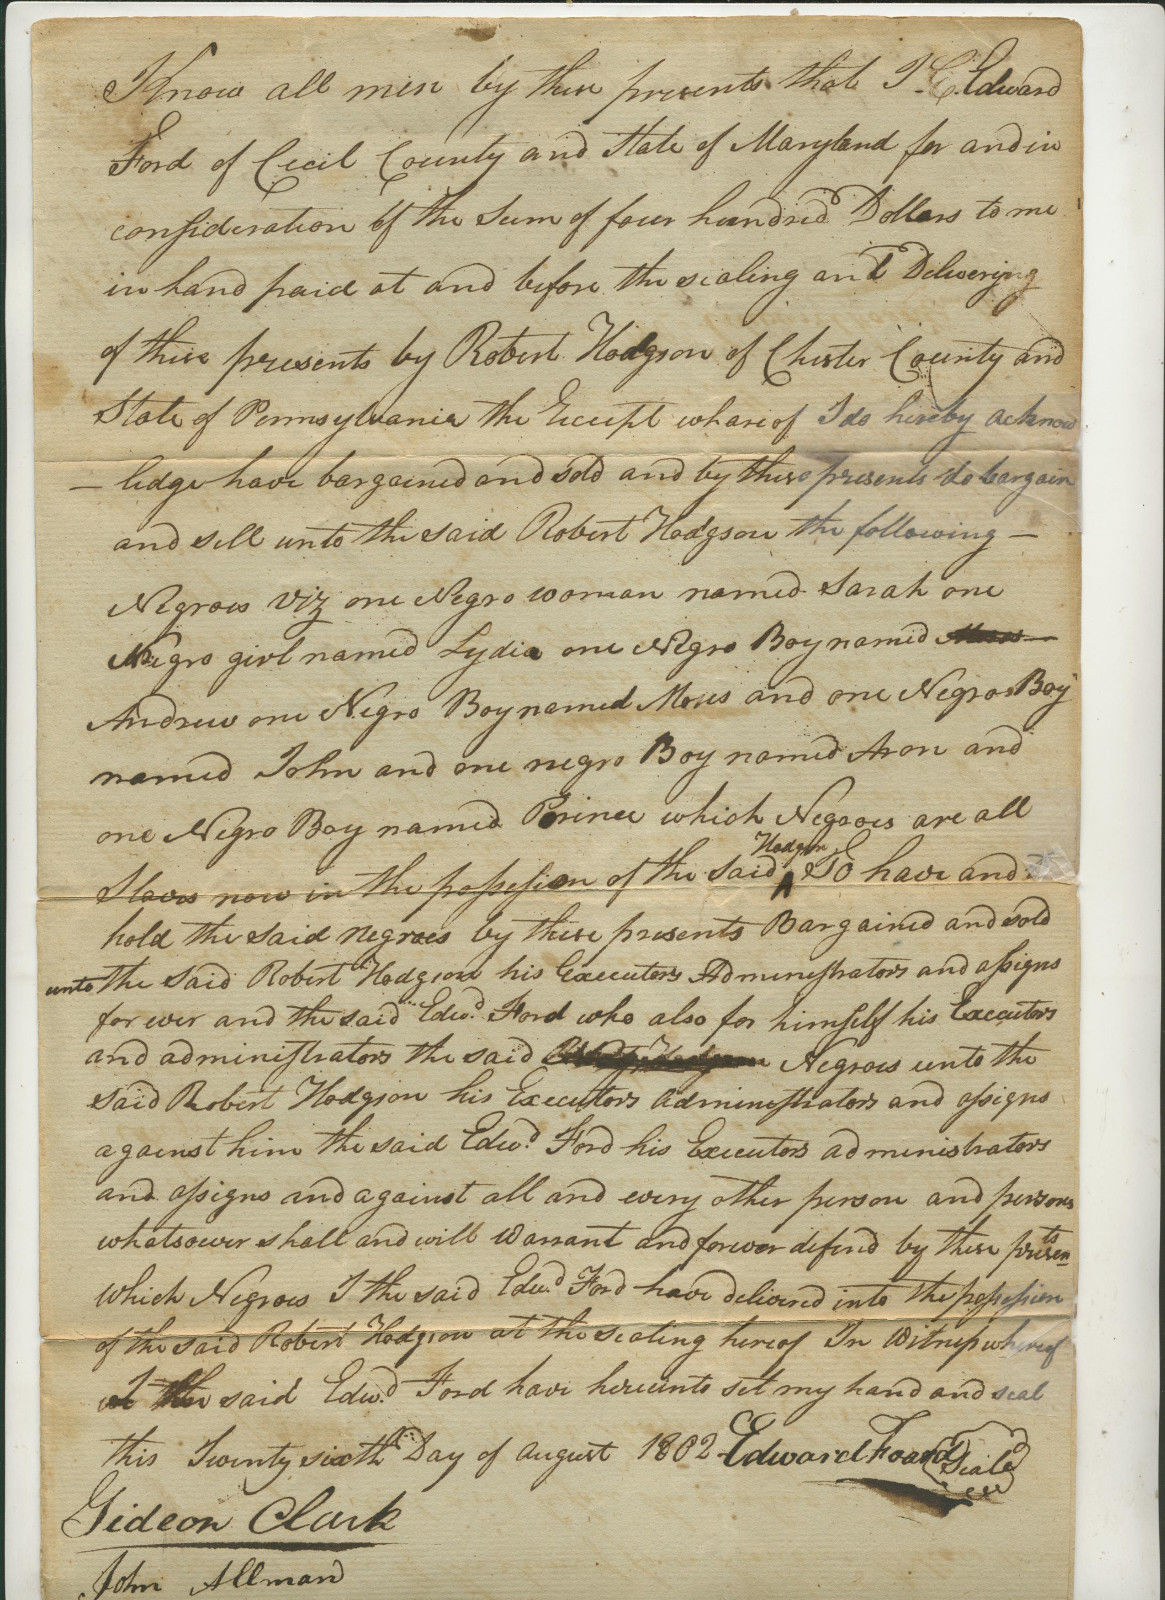 Know all men by these presents that I Edward
Ford of Cecil County and State of Maryland for and in
consideration of the Sum of four hundred Dollars to me
in hand paid at and before the sealing and Delivering
of these presents by Robert Hodgson of Chester County and
State of Pennsylvania the Receipt whareof I do hereby acknow
– ledge have bargained and sold and by these presents do bargain
and sell unto the said Robert Hodgson the following –
Negroes viz one Negro woman named Sarah one
Negro girl named Lydia one Negro Boy named Moses
Andrew one Negro Boy named Moses and one Negro Boy
named John and one negro Boy named Aron and
one Negro Boy named Prince which Negroes are all
Slaves now in the possession of the said Hodgson To have and
hold the said negroes by these presents Bargained and sold
unto the said Robert Hodgson his Executors Administrators and assigns
for ever and the said Edwd. Ford who also for himself his Executors
and administrators the said Negroes unto the
said Robert Hodgson his Executors administrators and assigns
against him the said Edwd. Ford his Executors administrators
and assigns and against all and every other person and persons
whatsoever shall and will Warrant and forever defend by these presents
which Negroes I the said Edwd. Ford have delivered into the possession
of the said Robert Hodgson at the sealing hereof In Witness whereof
I the said Edwd. Ford have hereunto set my hand and seal
this Twenty sixth Day of August 1802 Edward Foard Seale
Gideon Clark
John Allmand